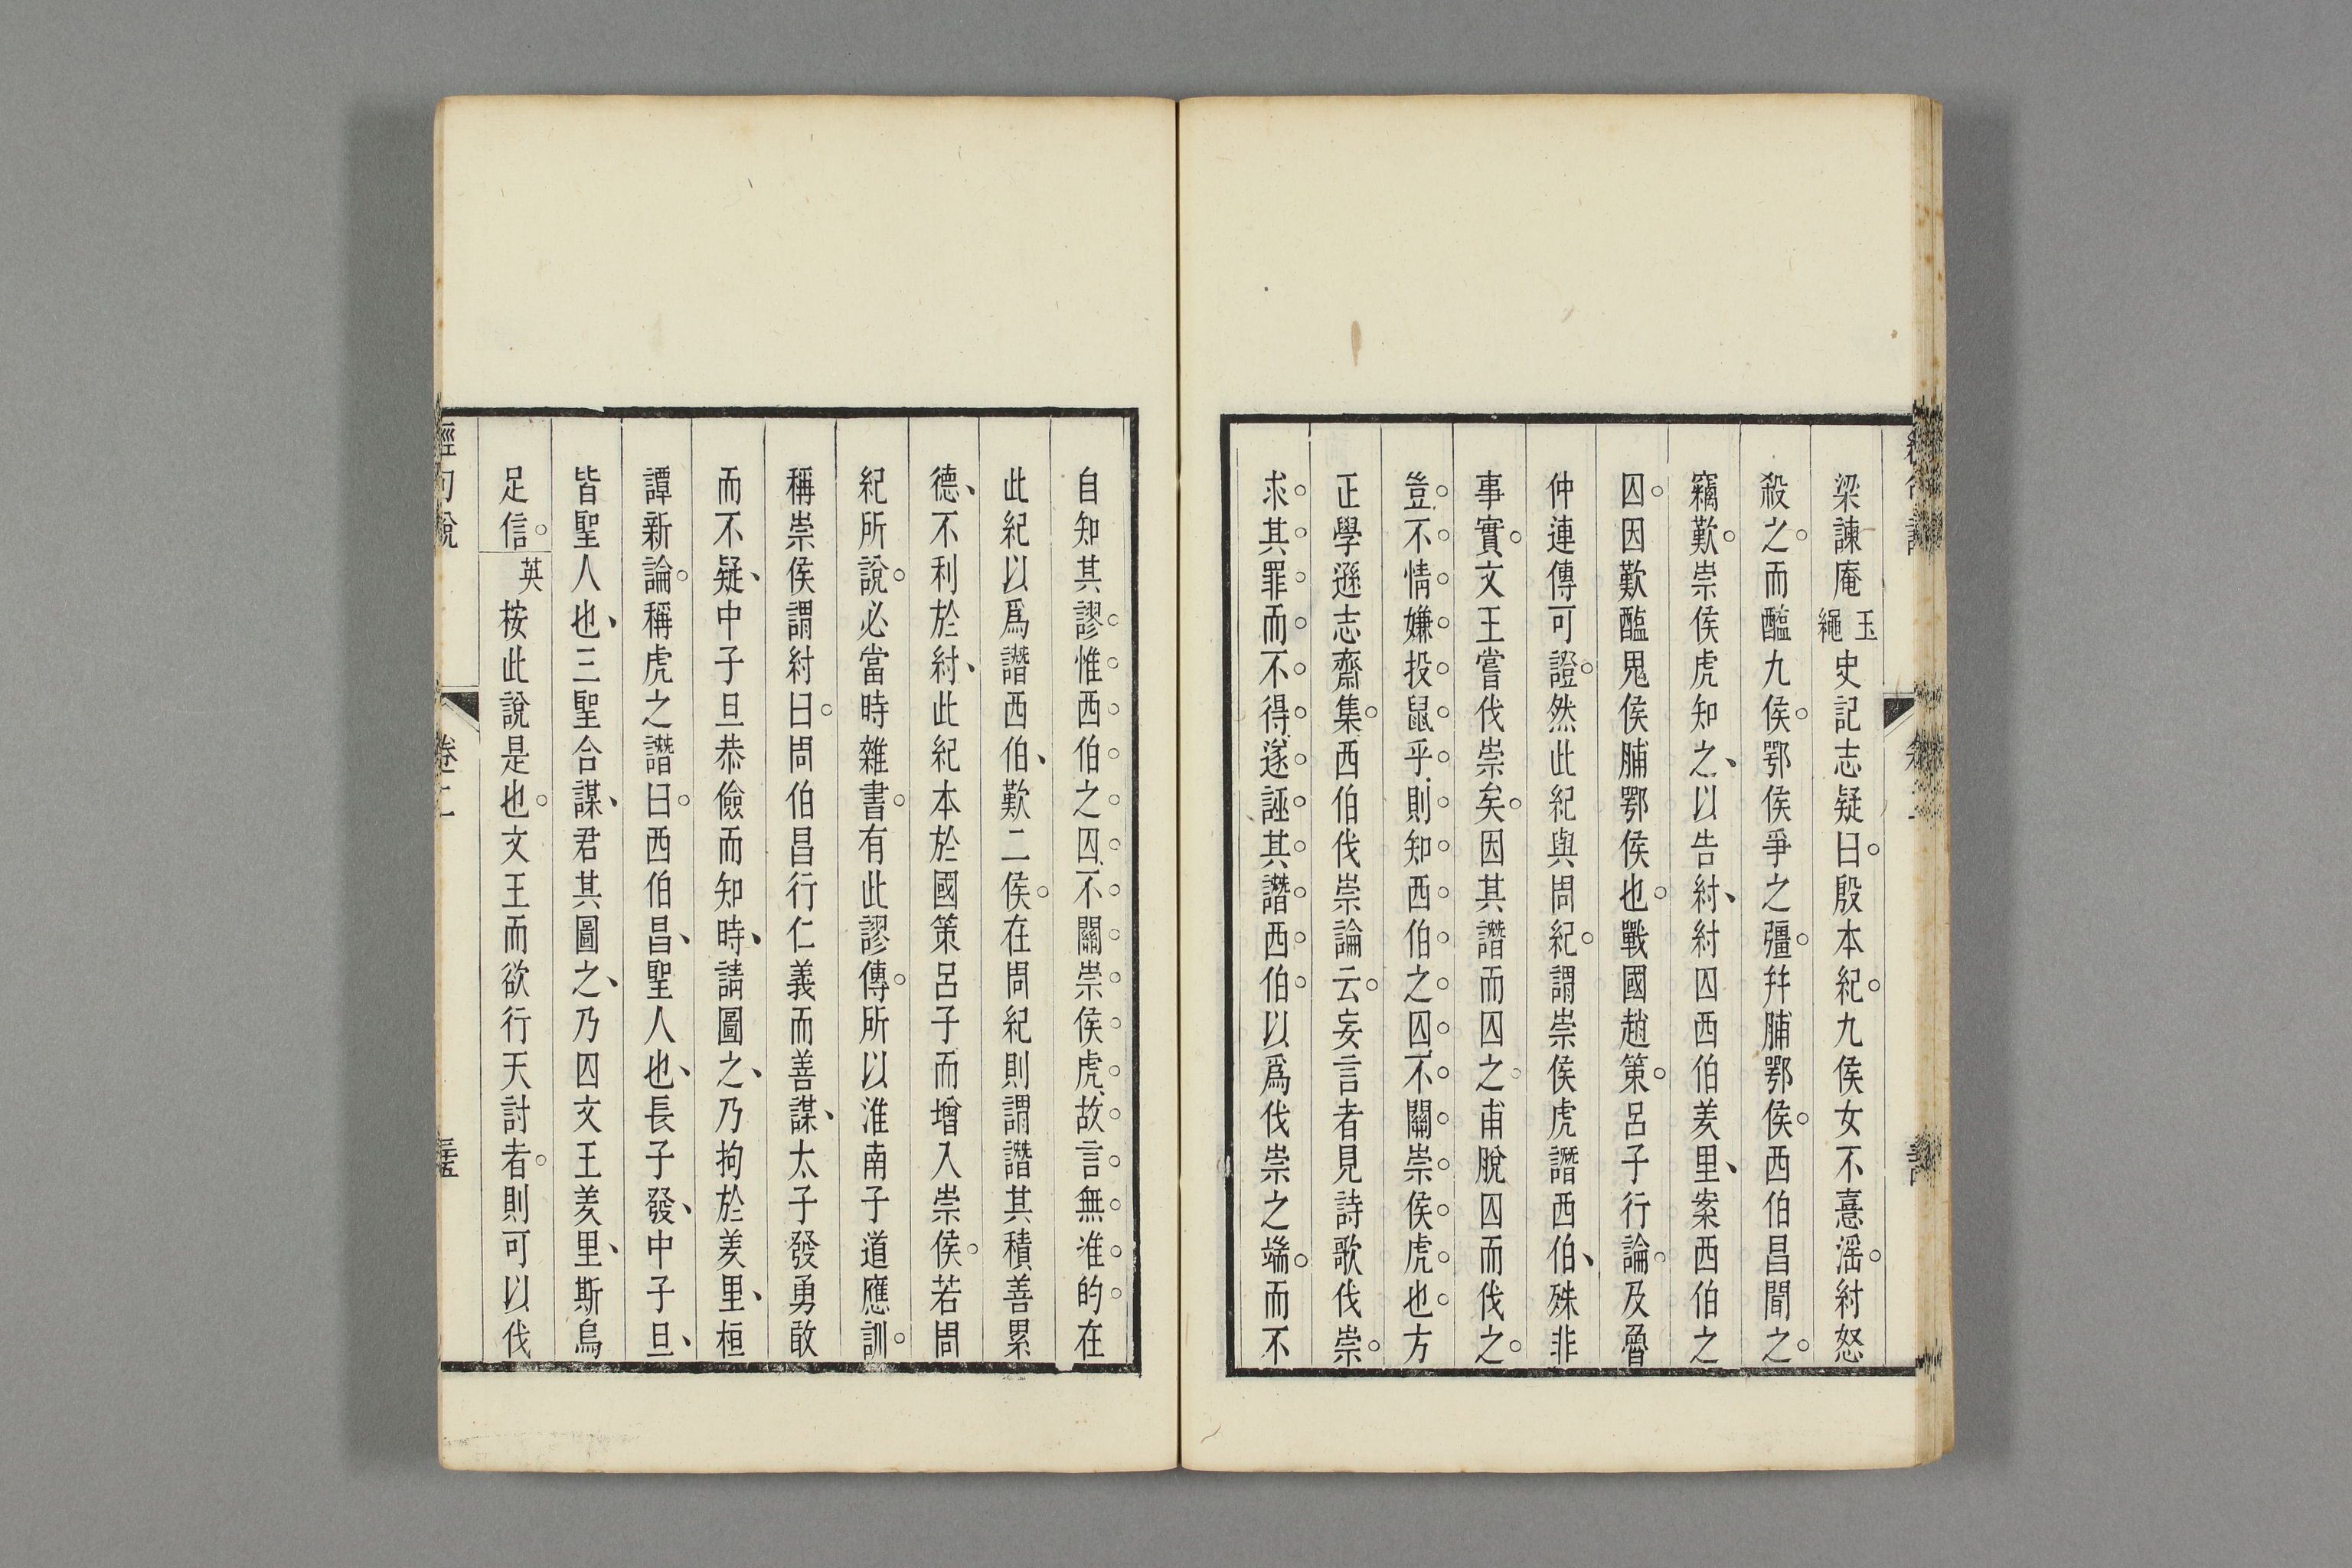 梁諫庵玉繩史記志疑曰。殷本紀。九侯女不憙淫。紂怒
殺之。而醢九侯。鄂侯爭之彊。幷脯鄂侯。西伯昌聞之。
竊歎。崇侯虎知之、以告紂、紂囚西伯羑里、案西伯之
囚。因歎醢鬼侯脯鄂侯也。戰國趙策。呂子行論。及魯
仲連傳可證。然此紀與周紀。謂崇侯虎譖西伯、殊非
事實。文王嘗伐崇矣。因其譖而囚之。甫脫囚而伐之。
豈不情嫌投鼠乎。則知西伯之囚。不關崇侯虎也。方
正學遜志齋集。西伯伐崇論云。妄言者見詩歌伐崇。
求其罪而不得。遂誣其譖西伯。以爲伐崇之端。而不
自知其謬。惟西伯之囚。不關崇侯虎。故言無准的。在
此紀以爲譖西伯、歎二侯。在周紀則謂譖其積善累
德、不利於紂、此紀本於國策呂子而增入崇侯。若周
紀所說。必當時雜書。有此謬傳。所以淮南子道應訓。
稱崇侯謂紂曰。周伯昌行仁義而善謀、太子發勇敢
而不疑、中子旦恭儉而知時、請圖之、乃拘於羑里、桓
譚新論。稱虎之譖曰。西伯昌、聖人也、長子發、中子旦、
皆聖人也、三聖合謀、君其圖之、乃囚文王羑里、斯烏
足信。英按此說是也。文王而欲行天討者。則可以伐
經句說
卷二